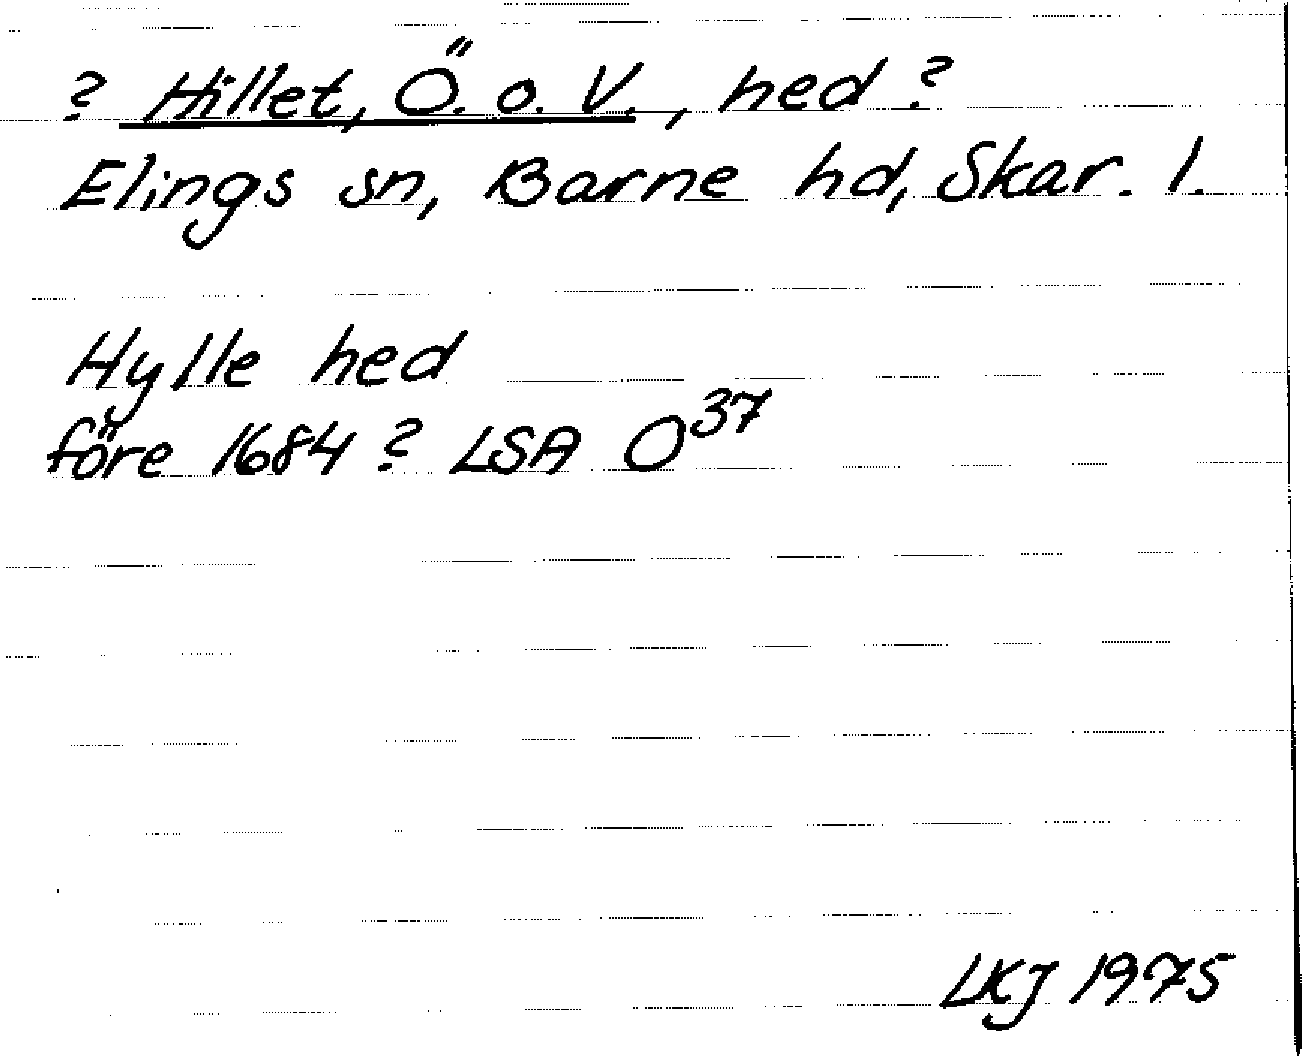 ? Hillet, Ö. o. V., hed ?
Elings sn, Barne hd, Skar. l.
Hylle hed
före 1684 ? LSA O³⁷
LKJ 1975